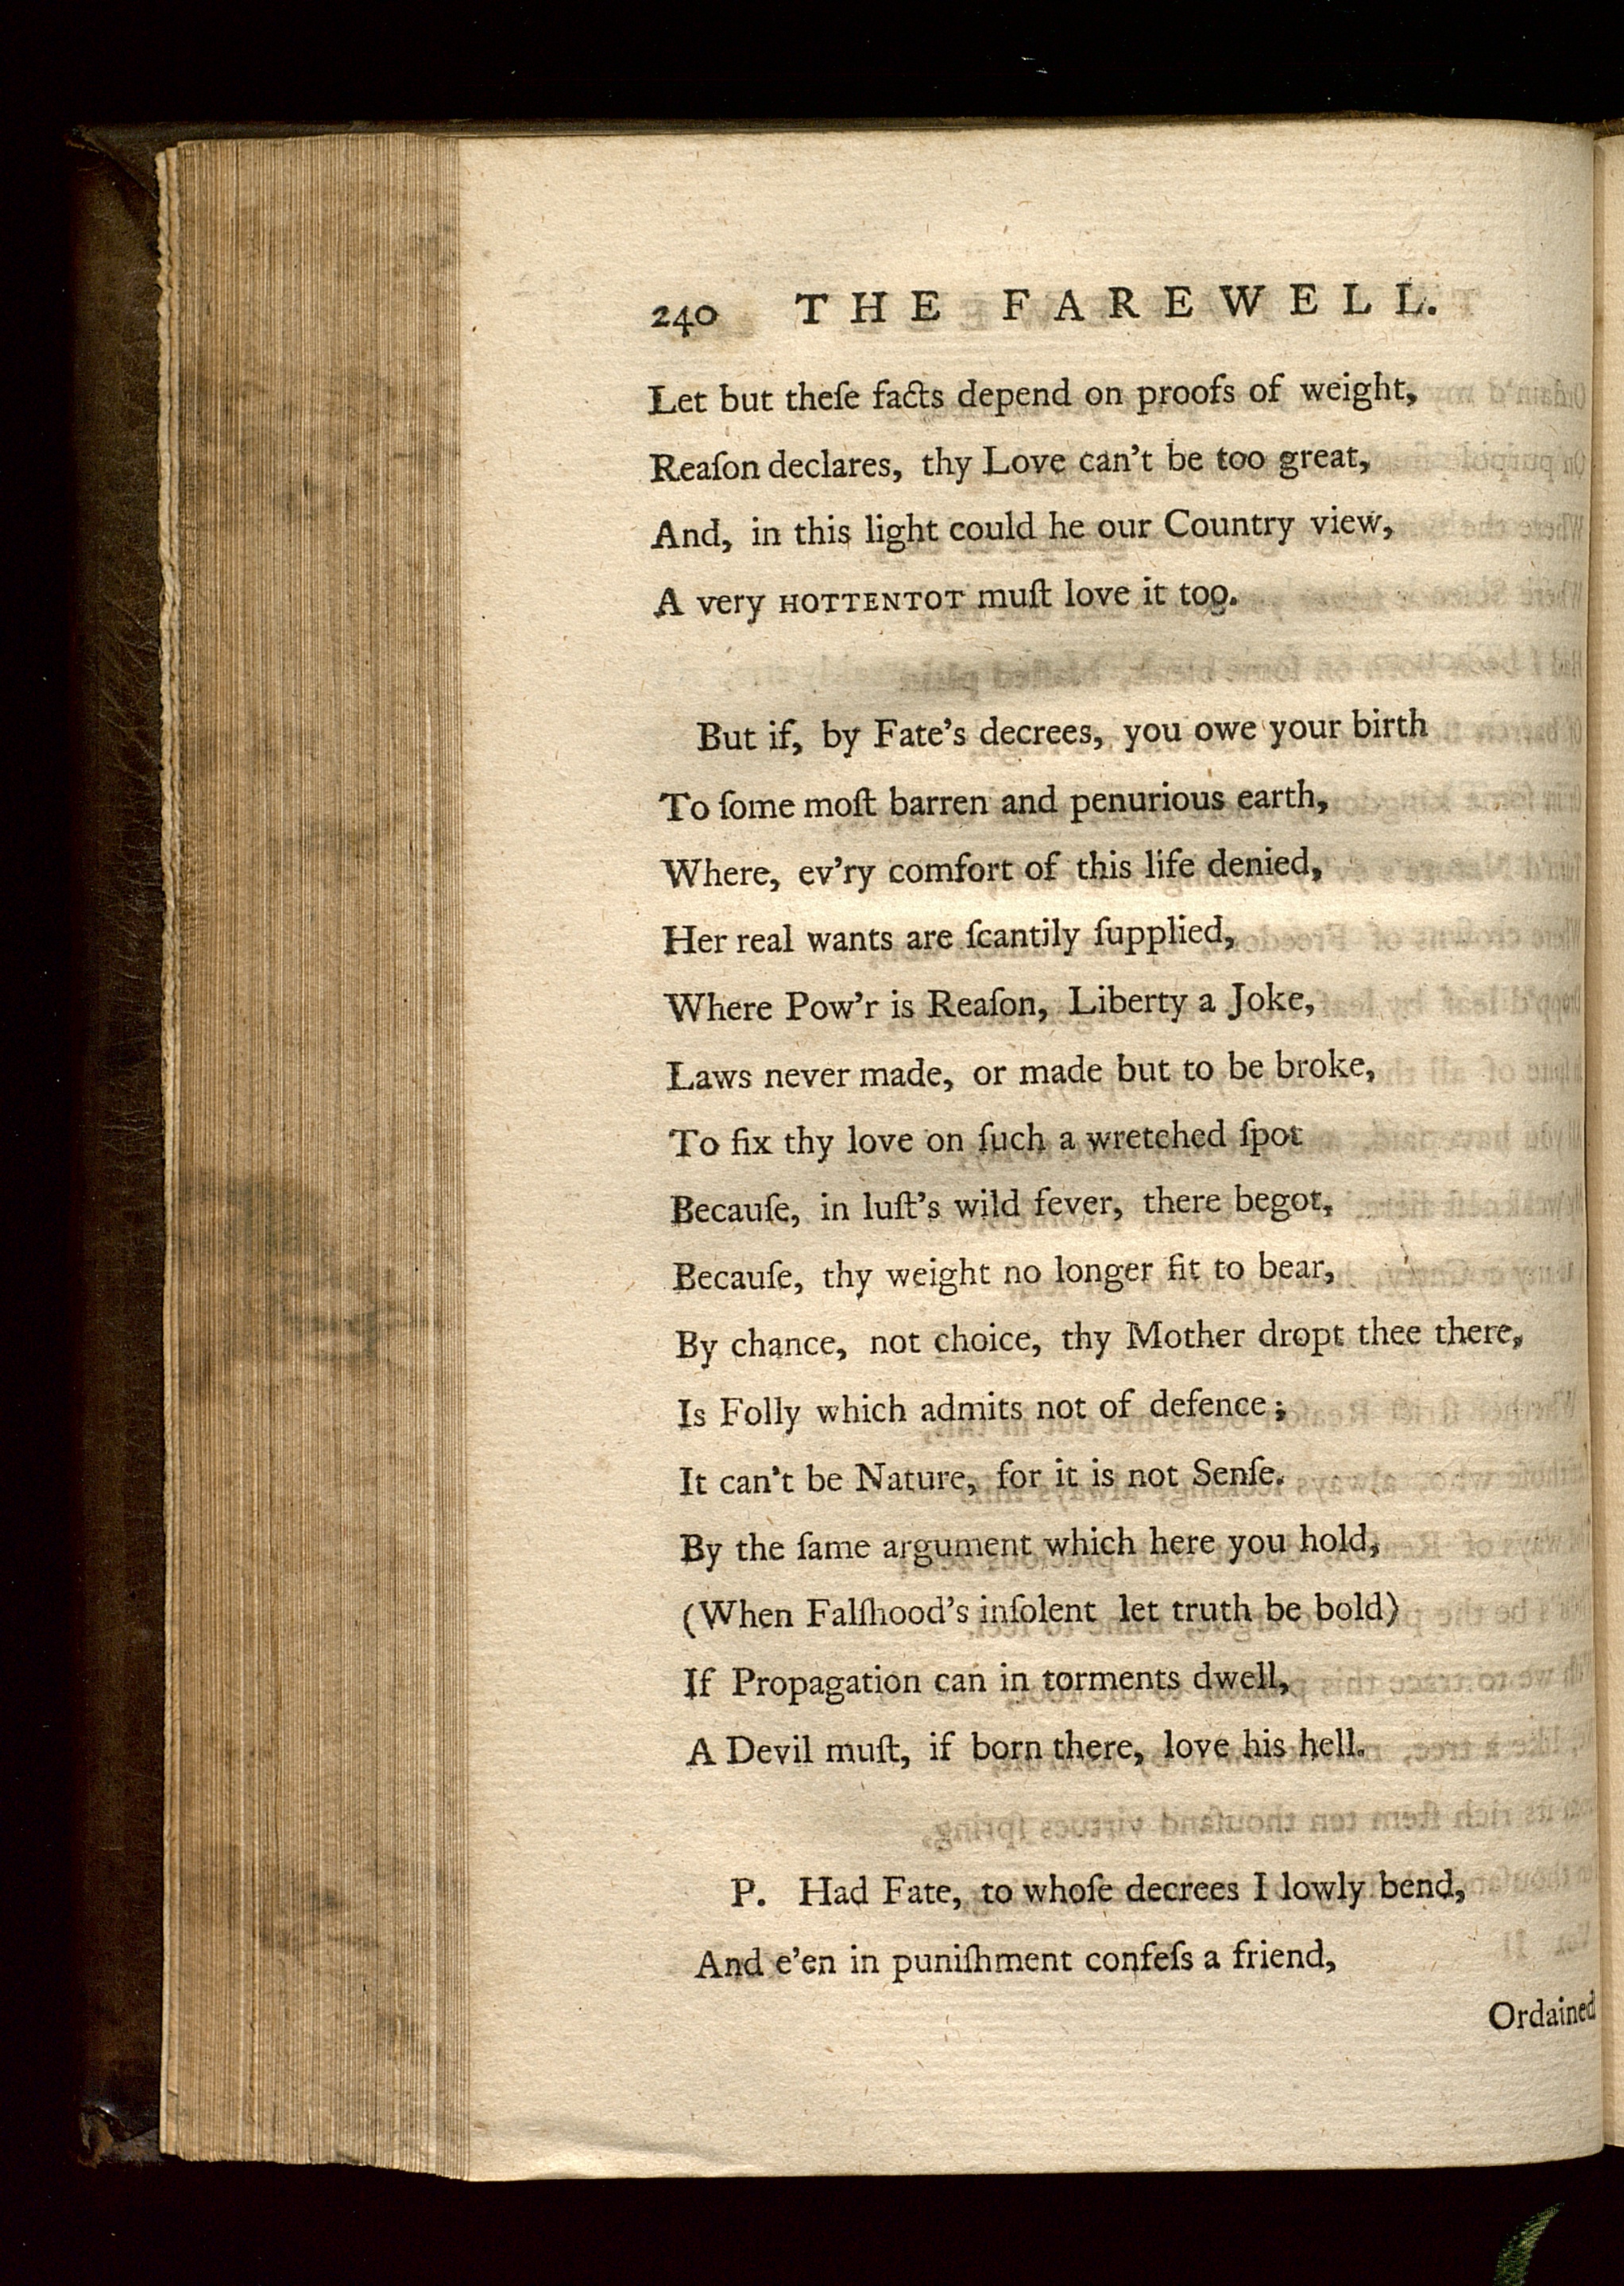 240 THE FAREWELL.
Let but theſe facts depend on proofs of weight,
Reaſon declares, thy Love can't be too great,
And, in this light could he our Country view,
A very HOTTENTOT muſt love it too.
But if, by Fate's decrees, you owe your birth
To ſome moſt barren and penurious earth,
Where, ev'ry comfort of this life denied,
Her real wants are ſcantily ſupplied,
Where Pow'r is Reaſon, Liberty a Joke,
Laws never made, or made but to be broke,
To fix thy love on ſuch a wretched ſpot
Becauſe, in luſt's wild fever, there begot,
Becauſe, thy weight no longer fit to bear,
By chance, not choice, thy Mother dropt thee there,
Is Folly which admits not of defence;
It can't be Nature, for it is not Senſe.
By the ſame argument which here you hold,
(When Falſhood's inſolent let truth be bold)
If Propagation can in torments dwell,
A Devil muſt, if born there, love his hell.
P. Had Fate, to whoſe decrees I lowly bend,
And e'en in puniſhment confeſs a friend,
Ordained